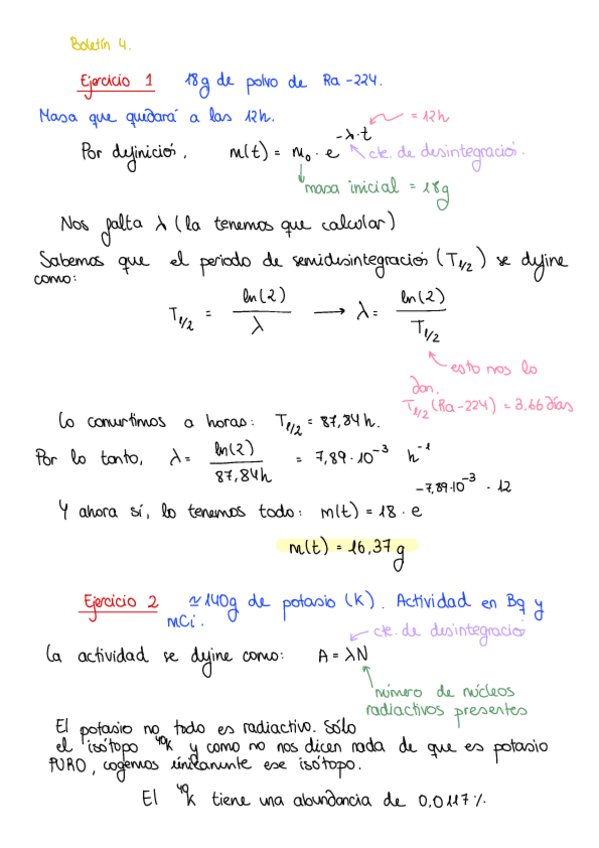 Boletín 4.
Ejercicio 1 18g de polvo de Ra-224.
Masa que quedará a las 12h.
= 12h
Por definición, m(t) = m₀ · e^(-λ·t) cte. de desintegració.
masa inicial = 18g
Nos falta λ (la tenemos que calcular)
Sabemos que el periodo de semidesintegració (T1/2) se define
como:
T1/2 = ln(2)/λ → λ = ln(2)/T1/2
esto nos lo
dan.
T1/2 (Ra-224) = 3.66 días
Lo convertimos a horas: T1/2 = 87,84h.
Por lo tanto, λ = ln(2)/87,84h = 7,89·10^-3 h^-1
Y ahora sí, lo tenemos todo: m(t) = 18 · e^(-7,89·10^-3 · 12)
m(t) = 16,37 g
Ejercicio 2 ≃140g de potasio (K). Actividad en Bq y
mCi.
cte. de desintegració
La actividad se define como: A = λN
número de núcleos
radiactivos presentes
El potasio no todo es radiactivo. Sólo
el isótopo ⁴⁰K y como no nos dicen nada de que es potasio
PURO, cogemos únicamente ese isótopo.
El ⁴⁰K tiene una abundancia de 0,0117%.